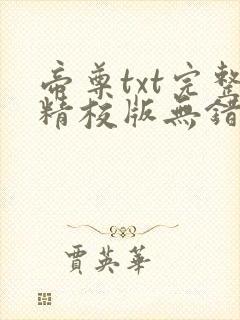 帝尊txt完整
精校版無錯
賈英華